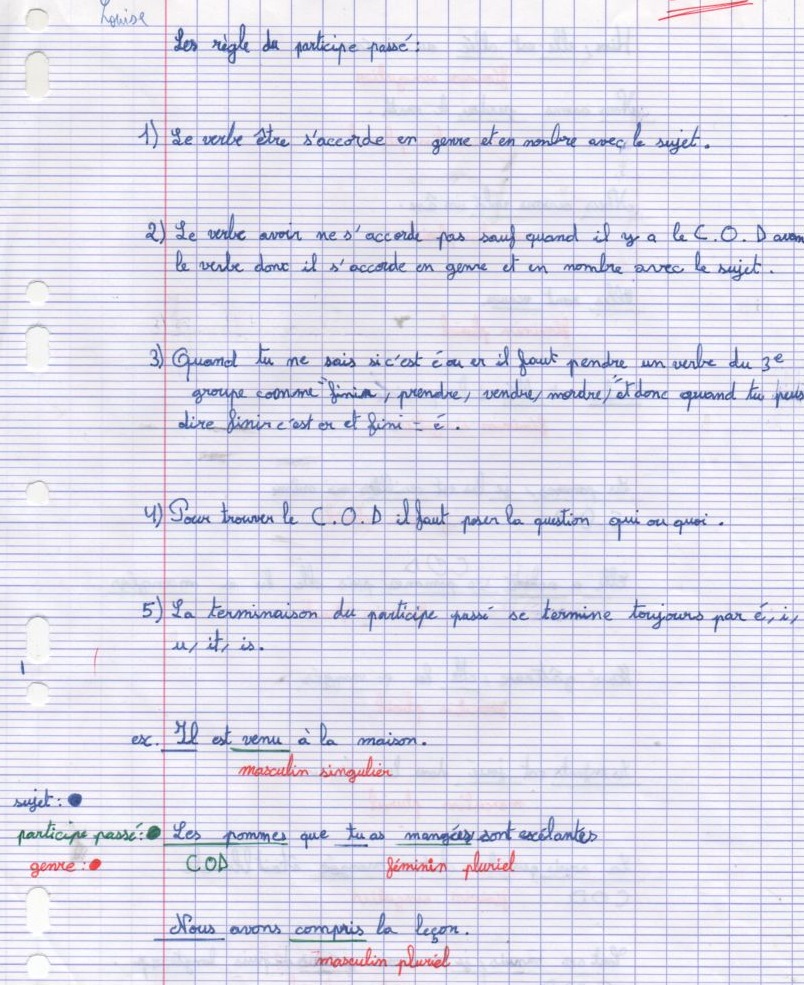 Louise
Les règle du participe passé :
1) Le verbe être s'accorde en genre et en nombre avec le sujet.
2) Le verbe avoir ne s'accorde pas sauf quand il y a le C.O.D avan
le verbe donc il s'accorde en genre et en nombre avec le sujet.
3) Quand tu ne sais si c'est é ou er il faut pendre un verbe du 3e
groupe comme "finir", prendre, vendre, mordre," et donc quand tu peus
dire finir c'est er et fini = é.
4) Pour trouver le C.O.D il faut poser la question qui ou quoi.
5) La terminaison du participe passé se termine toujours par é, i,
u, it, is.
ex. Il est venu à la maison.
masculin singulier
sujet :
participe passé : Les pommes que tu as mangées sont excélantes
genre : COD féminin pluriel
Nous avons compris la leçon.
masculin pluriel